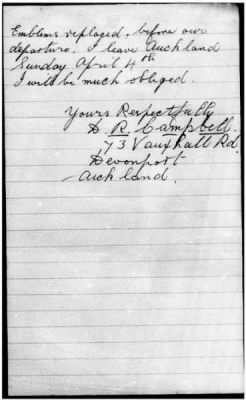 Emblems replaced, before our
departure. I leave Auckland
Sunday April 4th
I will be much obliged.
Yours Respectfully
D. R. Campbell.
73 Vauxhall Rd
Devonport
Auckland.